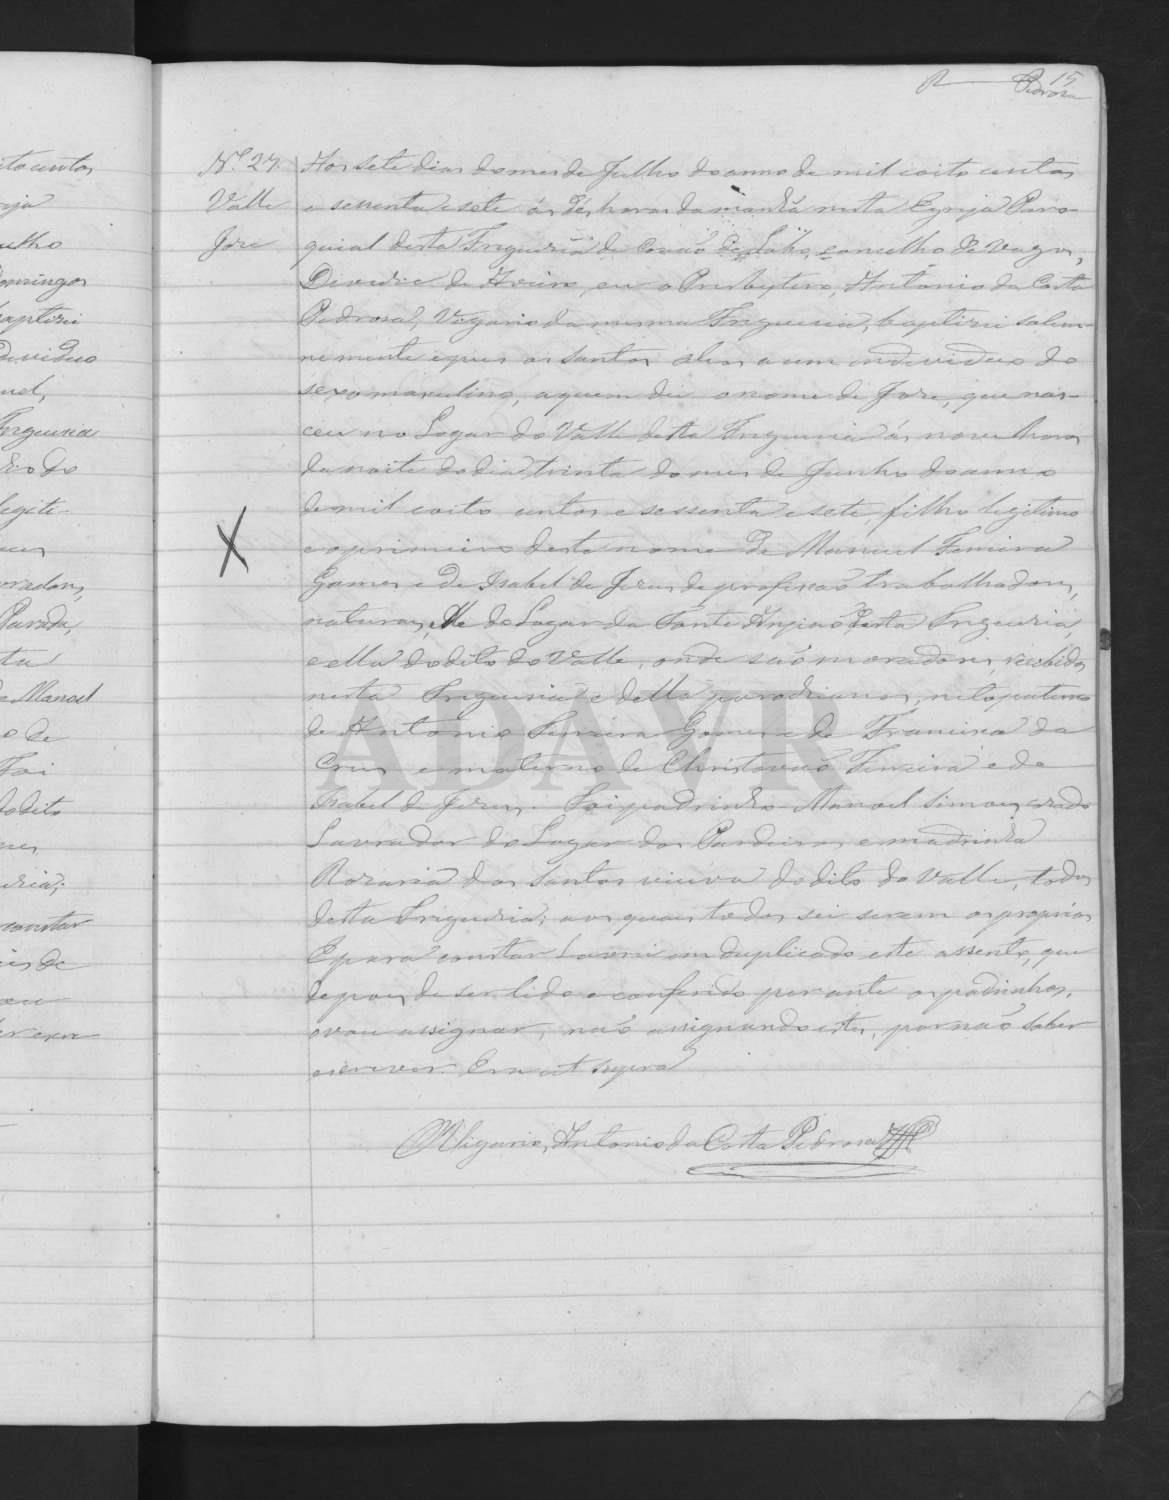 15
R Pedrosa
Nº 27.
Valle
Joze
Aos sete dias do mes de Julho do anno de mil oito centos
e sessenta e sete ás dés horas da manhã nesta Egreja Paro-
quial desta Freguesia de Covaõ do Lobo, concelho de Vagos,
Diocese de Aveiro, eu o Presbytero, Antonio da Costa
Pedrosa, Vigario da mesma Freguesia, baptizei solem-
nemente e pus os santos oleos a um individuo do
sexo masculino, a quem dei o nome de Joze, que nas-
ceu no Logar do Valle desta Freguesia ás nove horas
da noite do dia trinta do mes de Junho do anno
de mil oito centos e sessenta e sete, filho legitimo
e o primeiro deste nome de Manuel Ferreira
Gomes e de Isabel de Jezus de profissaõ trabalhadores,
naturaes, elle do Logar da Fonte desta Freguesia,
e ella do dito do Valle, onde saõ moradores, recebidos
nesta Freguesia e della parochianos, neto paterno
de Antonio Ferreira Gomes e de Francisca da
Crus e materno de Christovaõ Ferreira e de
Isabel de Jezus. Foi padrinho Manoel Simoes, casado
Lavrador do Logar dos Pardeiros e madrinha
Rozaria dos Santos viuva do dito do Valle, todos
desta Freguesia; aos quaes todos sei serem os proprios
E para constar lavrei em duplicado este assento, que
depois de ser lido e conferido perante os padrinhos,
o vou assignar, naõ assignando estes, por naõ saber
escrever. Era ut supra
O Vigario, Antonio da Costa Pedrosa
ADAVR